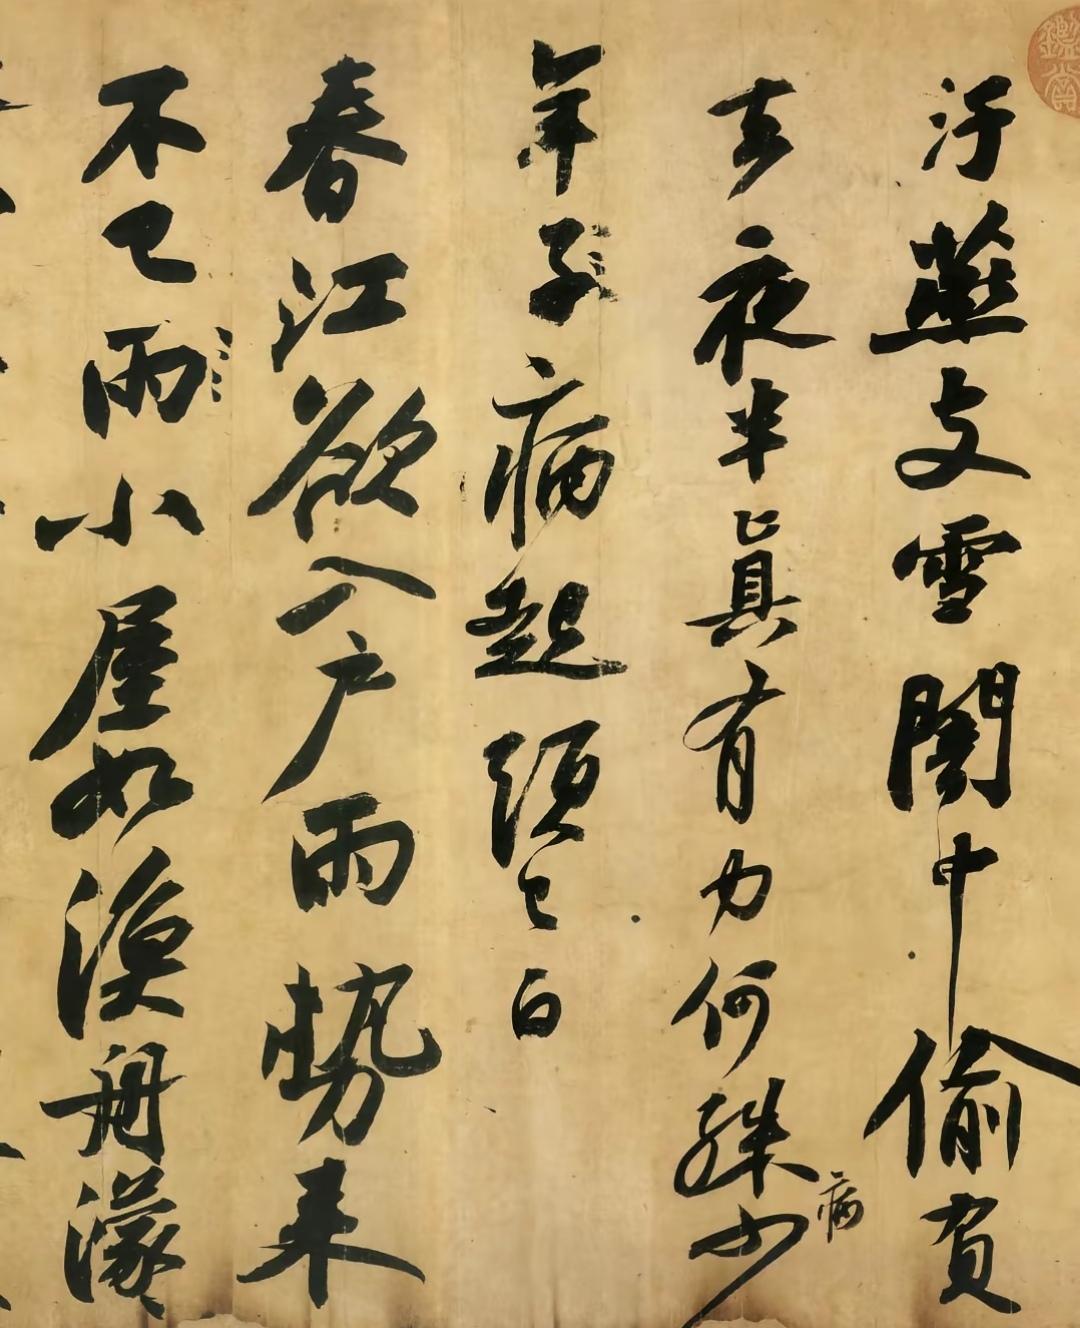 汙燕支雪闇中偷負
去夜半眞有力何殊病少
年子病起頭已白
春江欲入戶雨勢來
不已雨小屋如漁舟濛